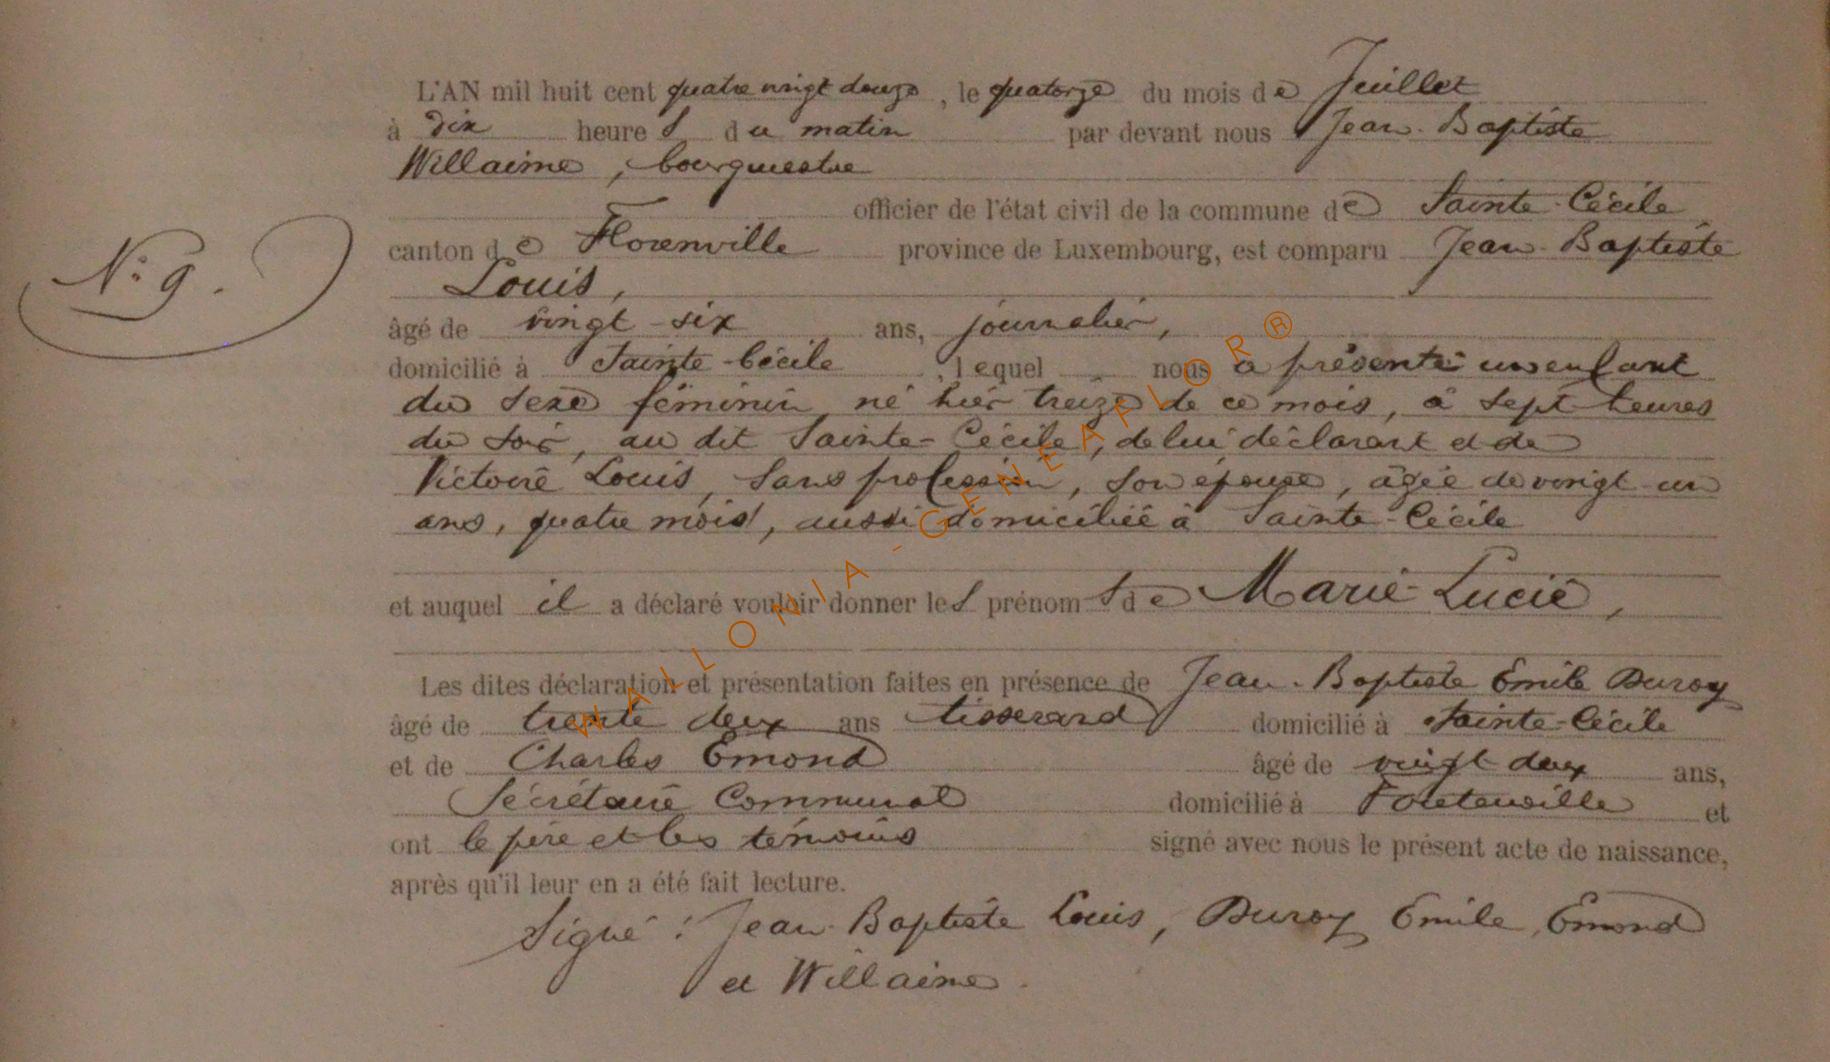 L'AN mil huit cent quatre vingt douze, le quatorze du mois de Juillet
à dix heures du matin par devant nous Jean-Baptiste
Willaime, bourgmestre
officier de l'état civil de la commune de Sainte-Cécile
N° 9.
canton de Florenville province de Luxembourg, est comparu Jean-Baptiste
Louis,
âgé de vingt-six ans, journalier,
domicilié à Sainte-Cécile, lequel nous a présenté un enfant
du sexe féminin, né hier treize de ce mois, à sept heures
du soir, au dit Sainte-Cécile, de lui déclarant et de
Victoire Louis, sans profession, son épouse, âgée de vingt-un
ans, quatre mois, aussi domiciliée à Sainte-Cécile
et auquel il a déclaré vouloir donner les prénoms de Marie-Lucie,
Les dites déclaration et présentation faites en présence de Jean-Baptiste Emile Duroy
âgé de trente deux ans tisserand domicilié à Sainte-Cécile
et de Charles Emond âgé de vingt deux ans,
Sécrétaire Communal domicilié à Fontenoille et
ont le père et les témoins signé avec nous le présent acte de naissance,
après qu'il leur en a été fait lecture.
Signé : Jean-Baptiste Louis, Duroy Emile, Emond
et Willaime.
WALLONIA-GENEAFLOR®